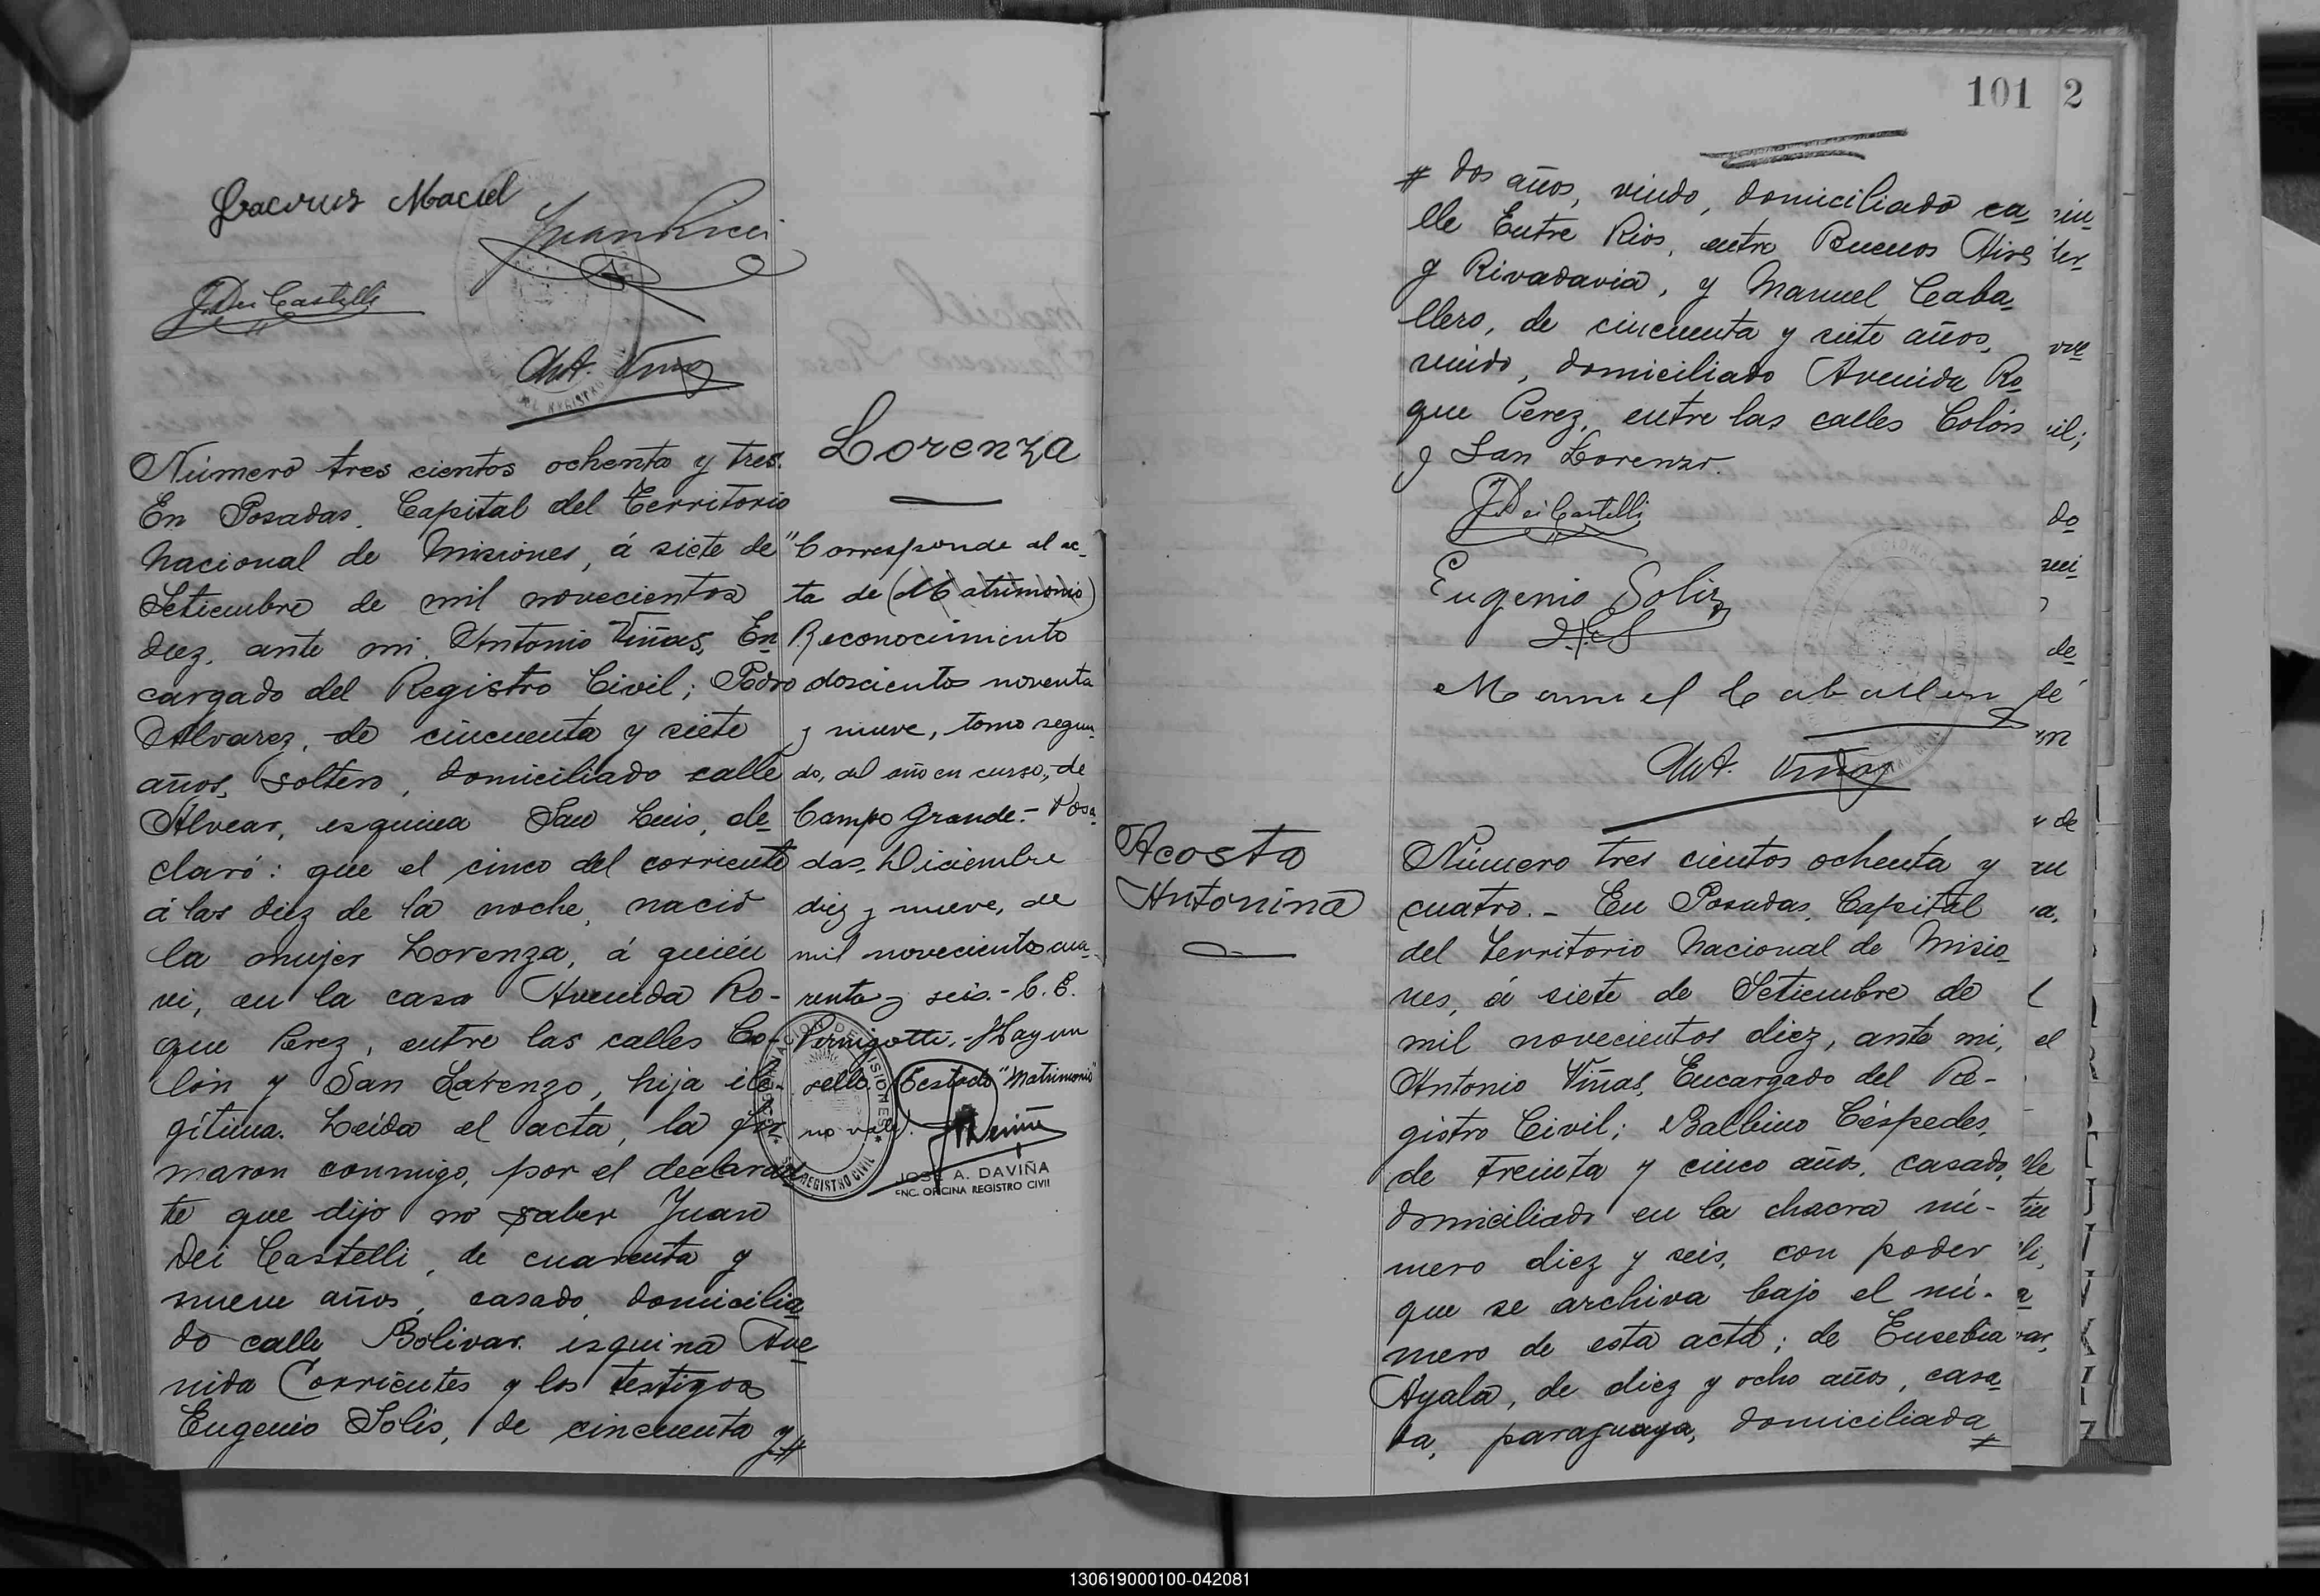 Maciel
Juan Ricci
J. Dei Castelli
Ant. Viñas
Número tres cientos ochenta y tres.
En Posadas, Capital del Territorio
Nacional de Misiones, á siete de
Setiembre de mil novecientos
diez, ante mi, Antonio Viñas, En
cargado del Registro Civil; Pedro
Alvarez, de cincuenta y siete
años, soltero, domiciliado calle
Alvear, esquina San Luis, de
claró: que el cinco del corriente
á las diez de la noche, nació
la mujer Lorenza, á quién
vi, en la casa Avenida Ro-
que Perez, entre las calles Co-
lón y San Lorenzo, hija ile-
gítima. Leída el acta, la fir
maron conmigo, por el declaran
te que dijo no saber Juan
Dei Castelli, de cuarenta y
nueve años, casado, domicilia
do calle Bolivar esquina Ave
nida Corrientes y los testigos
Eugenio Solis, de cincuenta y #
Lorenza
"Corresponde al ac-
ta de (Matrimonio)
Reconocimiento
doscientos noventa
y nueve, tomo segun
do, del año en curso, de
Campo Grande.- Posa
das, Diciembre
diez y nueve, de
mil novecientos cua-
renta y seis.- C. E.
Pernigotti.- Hay un
sello. Testado "Matrimonio"
no vale.
GOBERNACION DE MISIONES
REGISTRO CIVIL
JOSE A. DAVIÑA
ENC. OFICINA REGISTRO CIVIL
101 2
# dos años, viudo, domiciliado ca
lle Entre Rios, entre Buenos Aires
y Rivadavia, y Manuel Caba
llero, de cincuenta y siete años,
viudo, domiciliado Avenida Ro
que Perez, entre las calles Colón
y San Lorenzo.
J. Dei Castelli
Eugenio Soliz
Manuel Caballero
Ant. Viñas
Acosta
Antonina
Número tres cientos ochenta y
cuatro.- En Posadas, Capital
del Territorio Nacional de Misio
nes, á siete de Setiembre de
mil novecientos diez, ante mi,
Antonio Viñas, Encargado del Re-
gistro Civil; Balbino Céspedes,
de treinta y cinco años, casado,
domiciliado en la chacra nú-
mero diez y seis, con poder
que se archiva bajo el nú-
mero de esta acta; de Eusebia
Ayala, de diez y ocho años, casa
da, paraguaya, domiciliada #
130619000100-042081